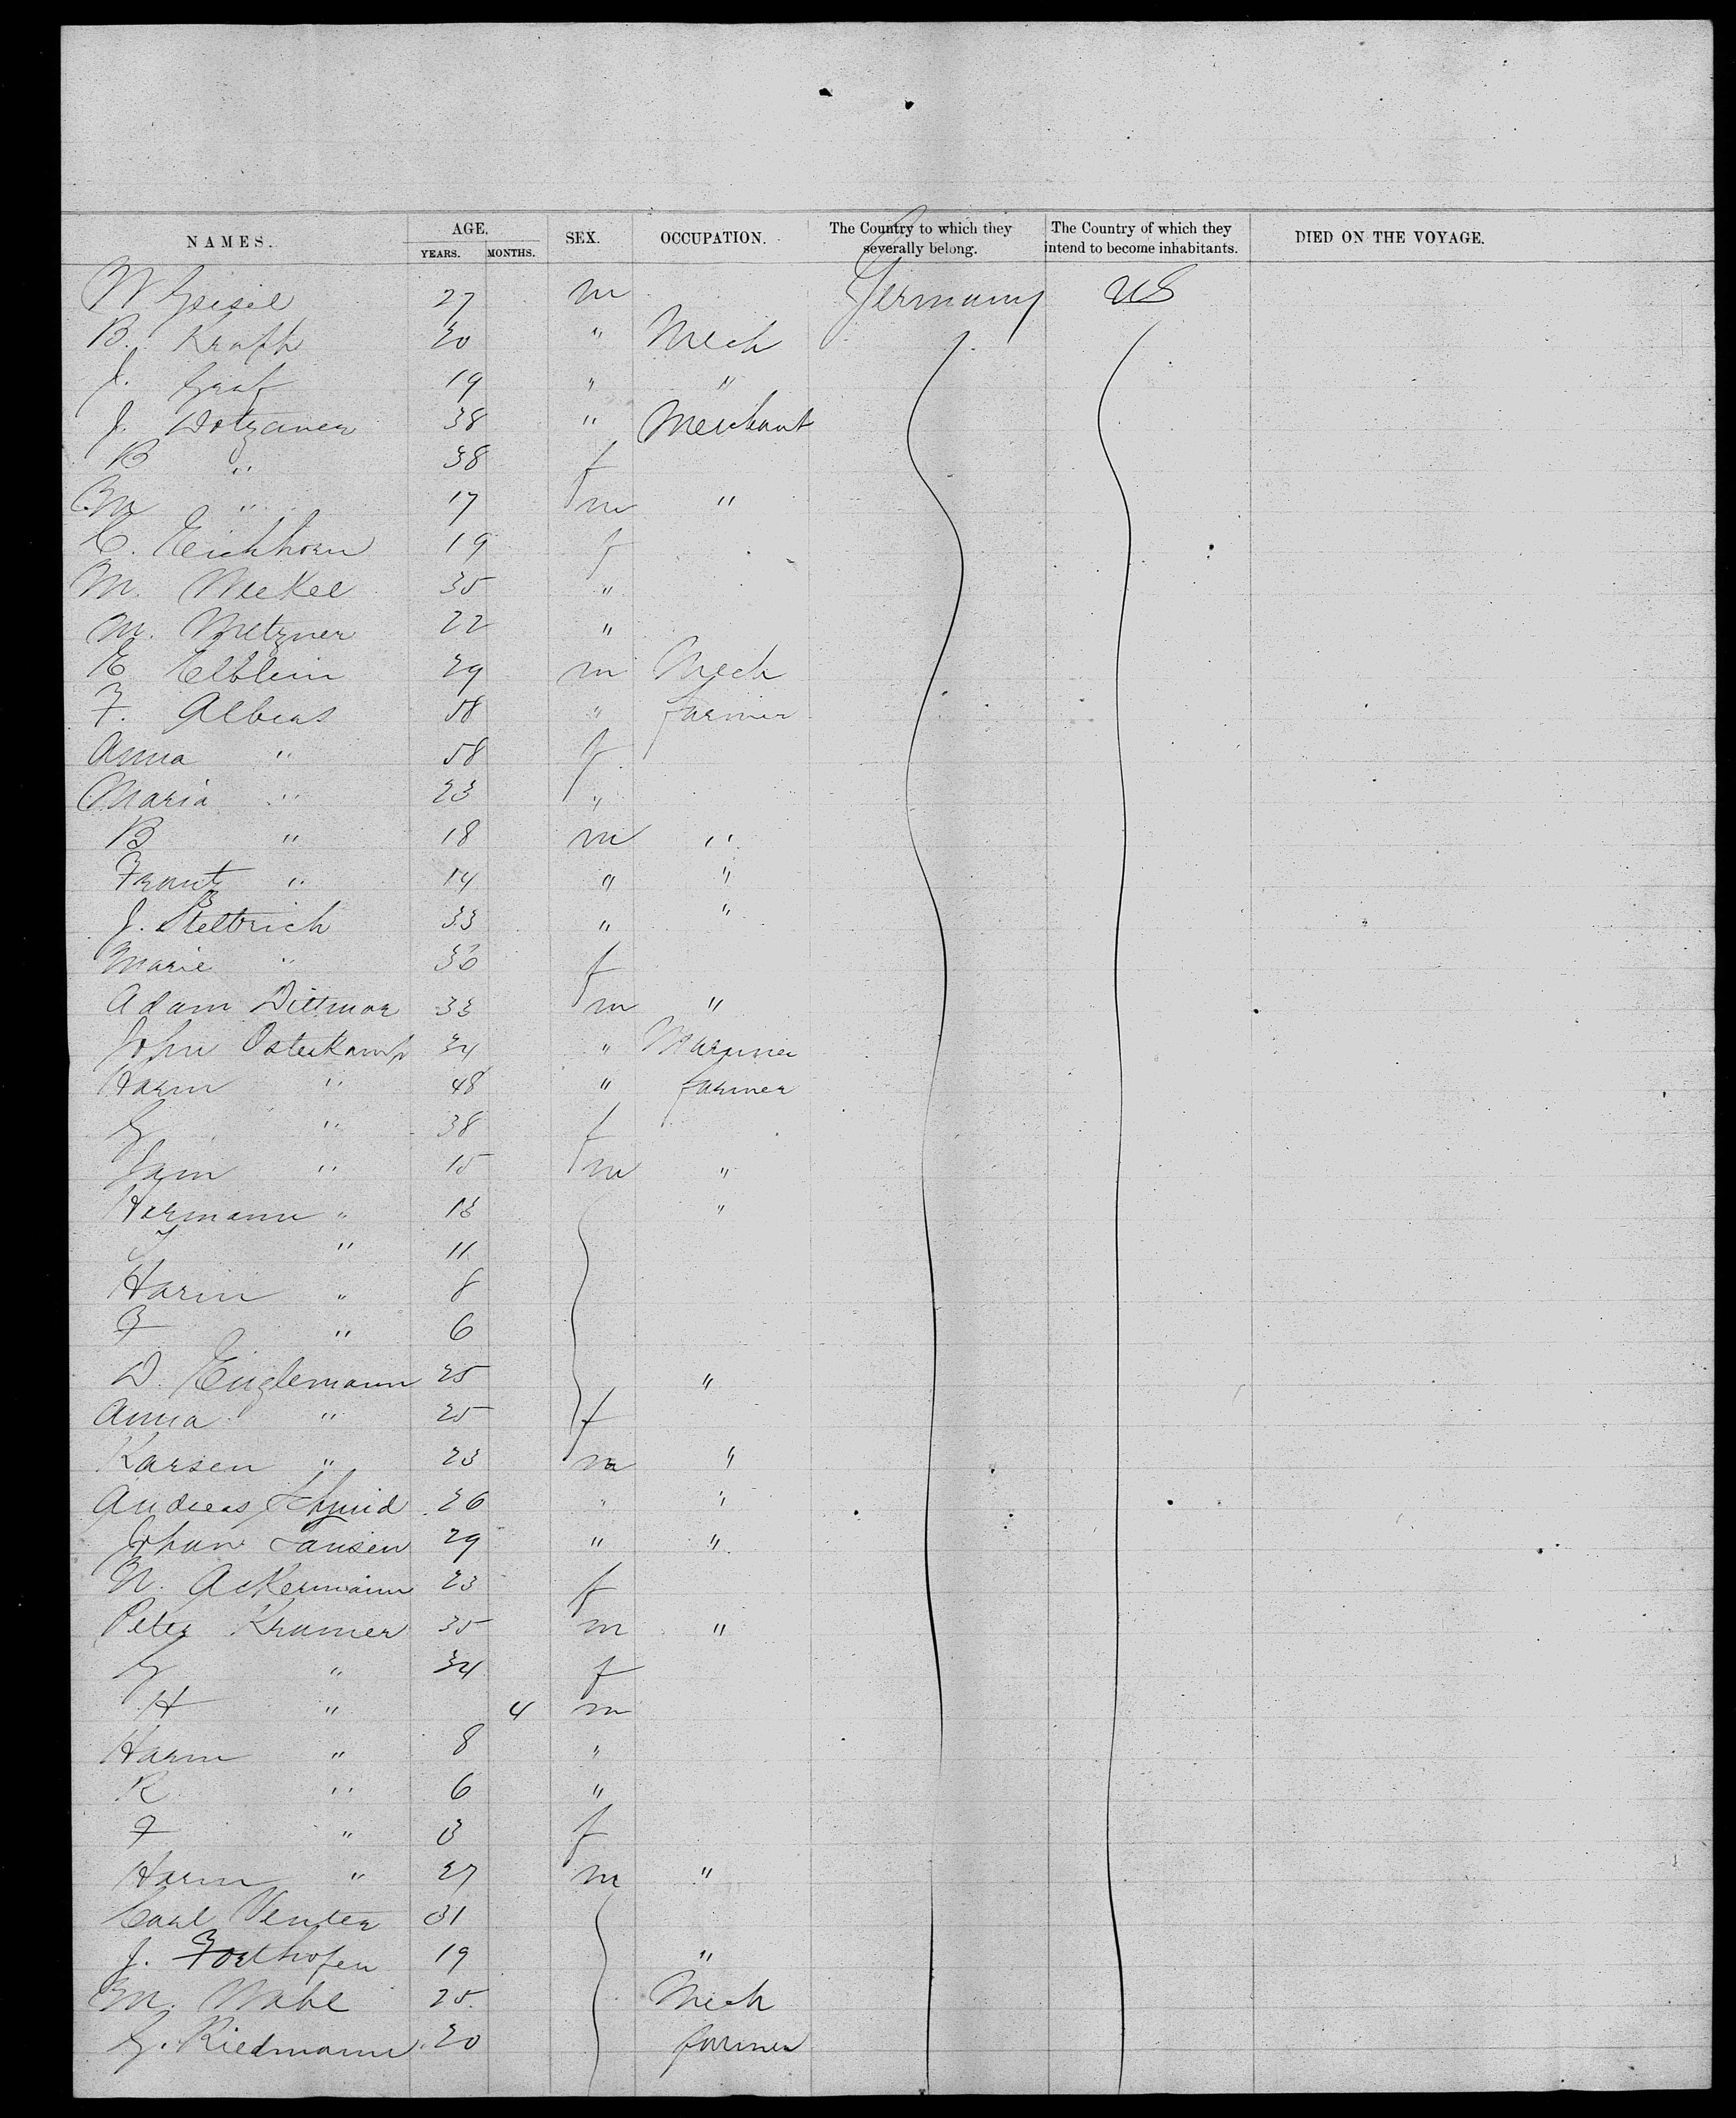 NAMES. AGE. YEARS. MONTHS. SEX. OCCUPATION. The Country to which they severally belong. The Country of which they intend to become inhabitants. DIED ON THE VOYAGE.
27 m Germany US
B. Kraft 20 " Mech
J. Graf 19 " "
J. Dotzaner 38 " Merchant
B " 38 f
M " 17 m "
C. Eichhorn 19 f
M. 35 "
M. Metzner 22 "
E Elblein 29 m Mech
F. Albers 58 " farmer
Anna " 58 f
Maria " 23 "
B " 18 m "
Frantz " 14 " "
J. 33 " "
Marie " 36 f
Adam Dittmar 33 m "
John Osterkamp 34 " Marriner
Harm " 48 " farmer
G " 38 f
Jam " 15 m "
Harmann " 13 "
" 11
Harm " 8
F " 6
D. Englemann 25 "
Anna " 25 f
Karsen " 23 m "
Andreas Schmid 26 " "
Johan Jansen 29 " "
N. Ackermann 23 f
Peter Kramer 35 m "
G " 34 f
H " 4 m
Harm " 8 "
R " 6 "
F " 3 f
Harm " 27 m "
Carl Venter 31
J. Forthofen 19 "
M. Wahl 25. Mech
G. Riedmann 20 farmer